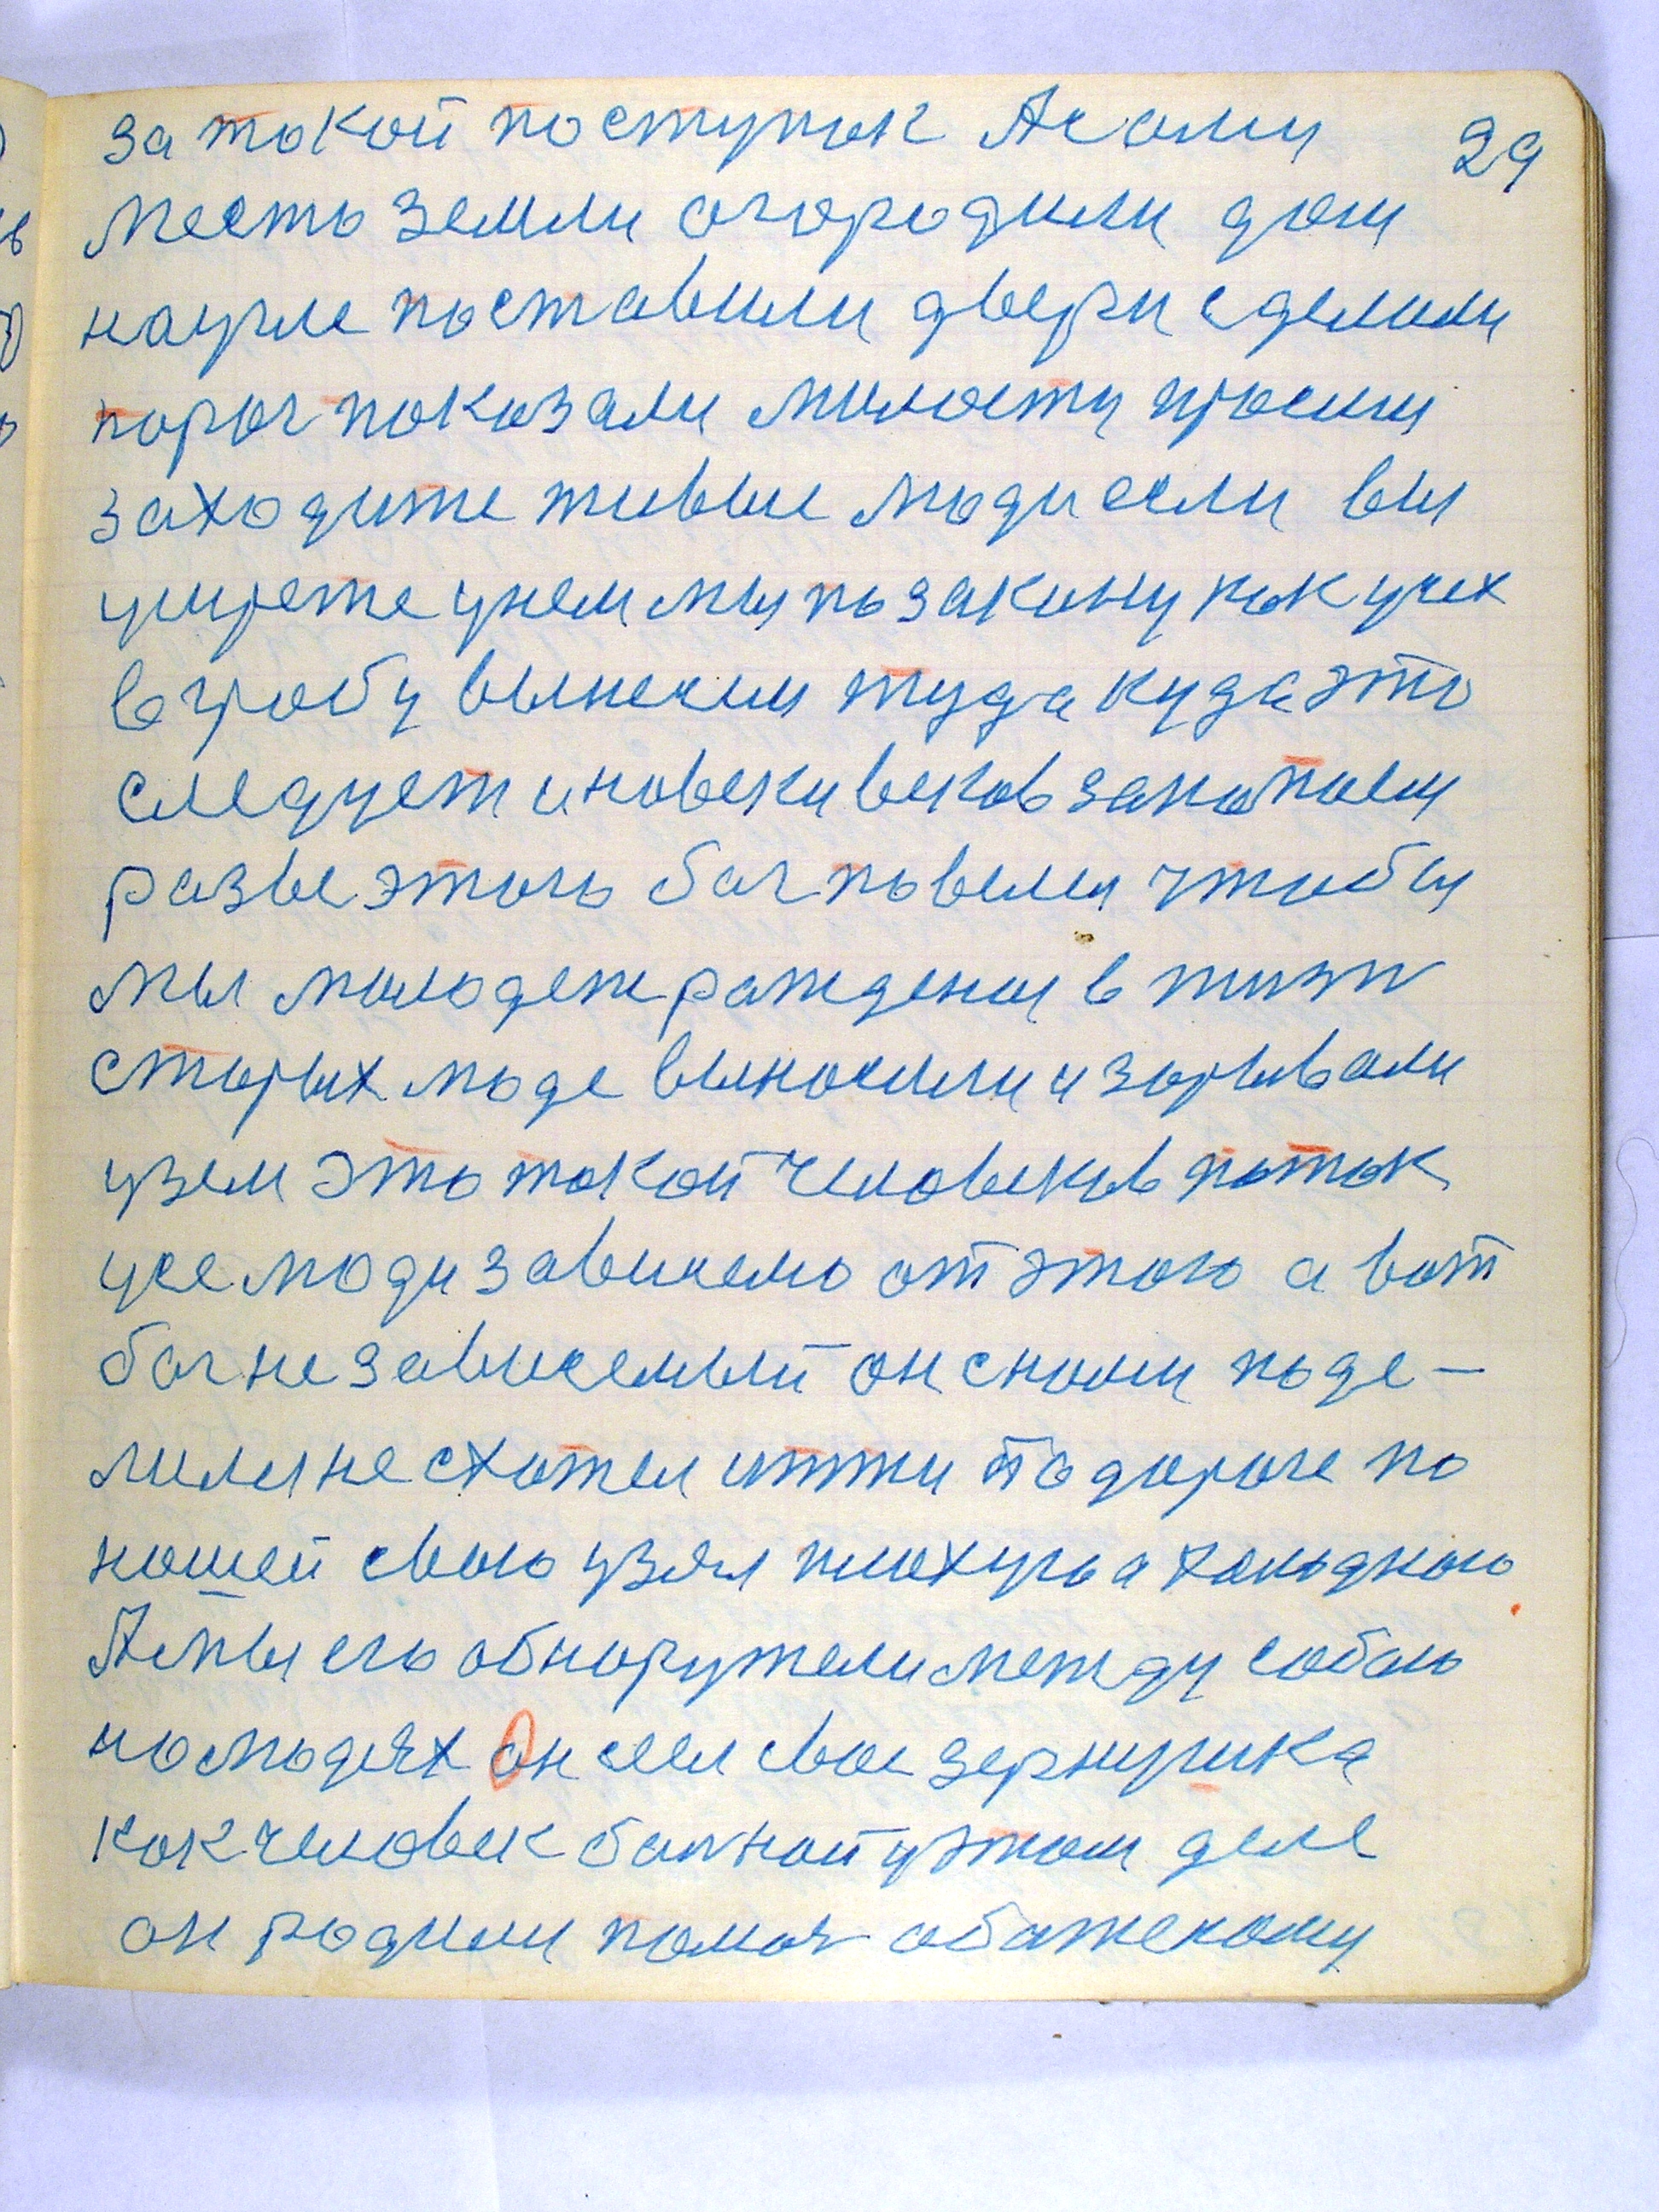 за такой поступок А сами 29
место земли огородили дом
наугле поставили двери сделали
порог показали милости просим
заходите живые люди если вы
умрете унем мы по закону как усех
вгробу вынесем туда куда это
следует и навеки веков закопаем
разве этого бог повелел чтобы
мы молодеж рождения в жизн
старых люде выносили и зарывали
узем это такой человеков поток
усе люди зависемо от этого а вот
бог не зависемый он снами поде–
лился не схотел итти по дороге по
нашей свою узял плохую а холодною
А мы его обнаружели между собою
на людях Он сеел свое зернушка
как человек бог ной у этом деле
он родил помог обажекому